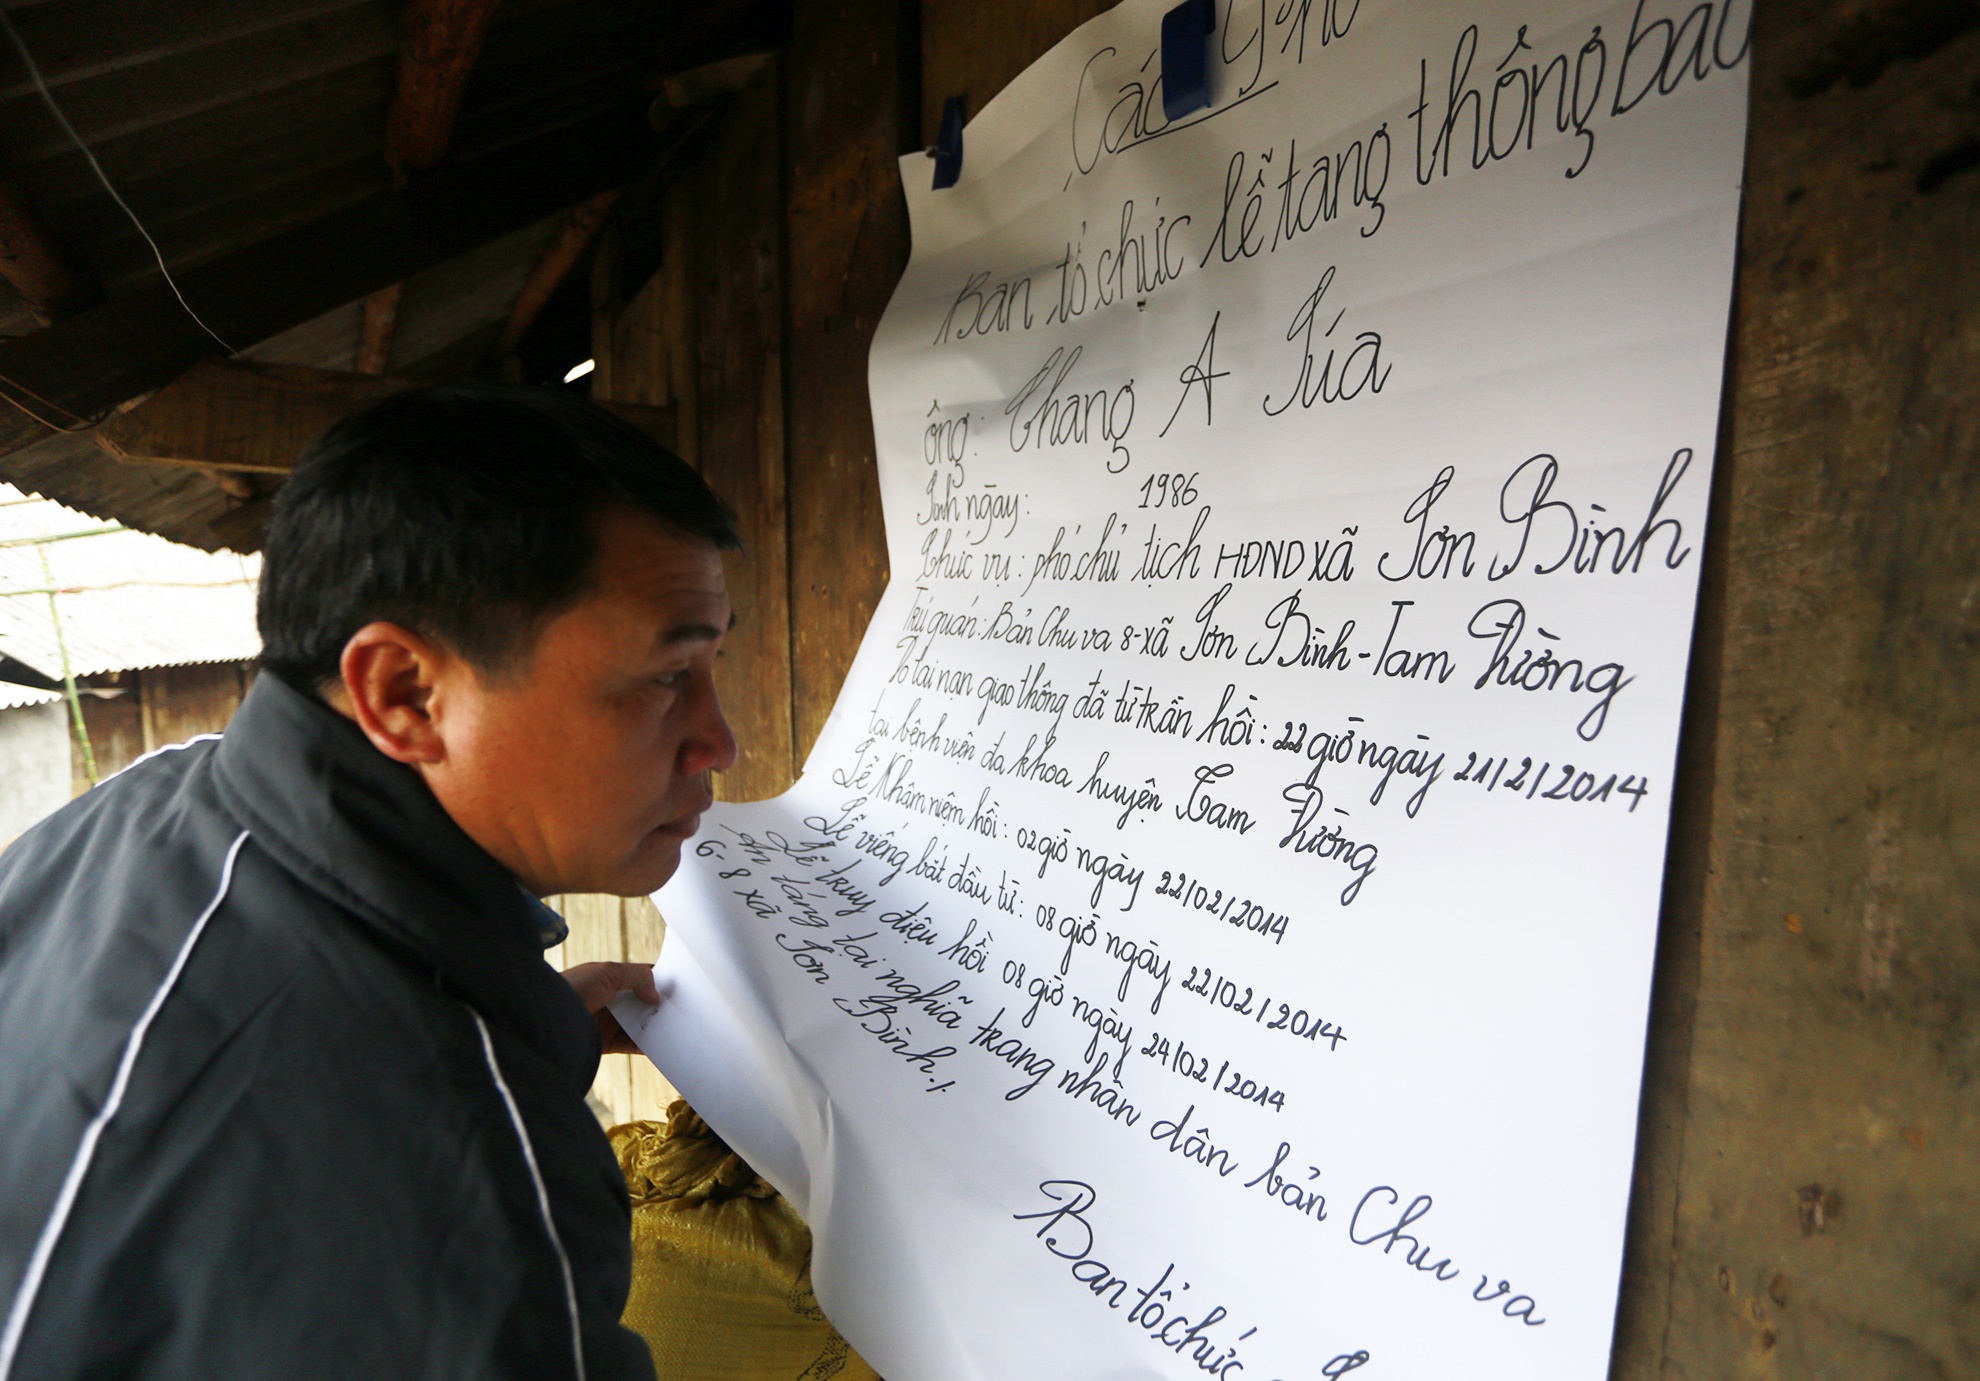 Cáo phó
Ban tổ chức lễ tang thông báo
ông: Chang A Túa
Sinh ngày: 1986
Chức vụ: phó chủ tịch HĐND xã Sơn Bình
Trú quán: Bản Chu va 8-xã Sơn Bình-Tam Đường
Do tai nạn giao thông đã từ trần hồi: 22 giờ ngày 21/2/2014
tại bệnh viện đa khoa huyện Tam Đường
Lễ Nhâm niệm hồi: 02 giờ ngày 22/02/2014
Lễ viếng bắt đầu từ: 08 giờ ngày 22/02/2014
Lễ truy điệu hồi 08 giờ ngày 24/02/2014
An táng tại nghĩa trang nhân dân bản Chu va
6-8 xã Sơn Bình./.
Ban tổ chức